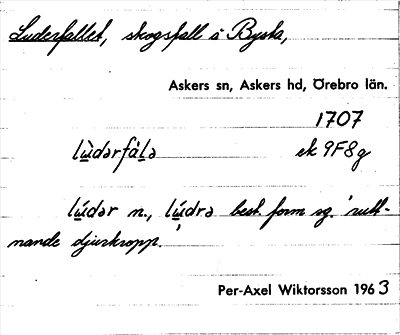 Luderfallet, skogsfall å Bysta,
Askers sn, Askers hd, Örebro län.
1707
lù̱dərfàḻə ek 9F8g
lú̱dər n., lú̱drə best. form sg. 'rutt-
nande djurkropp.'
Per-Axel Wiktorsson 1963